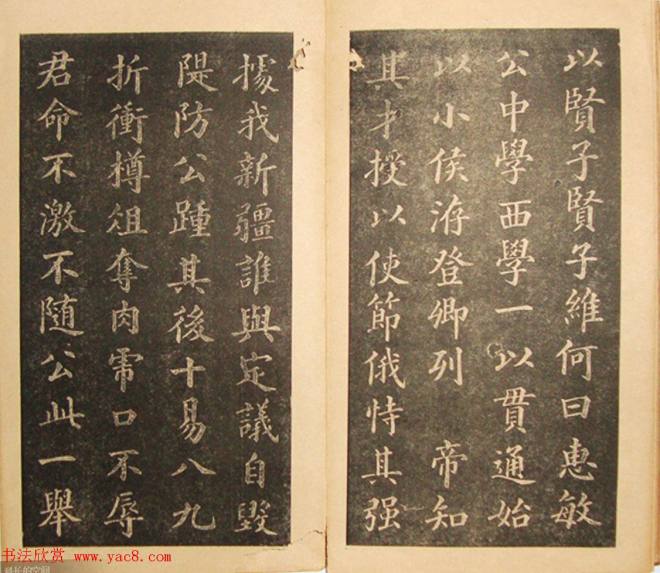 以賢子賢子維何曰惠敏
公中學西學一以貫通始
以小侯洊登卿列 帝知
其才授以使節俄恃其强
據我新疆誰與定議自毀
隄防公踵其後十易八九
折衝樽俎奪肉虎口不辱
君命不激不随公此一舉
书法欣赏 www.yac8.com